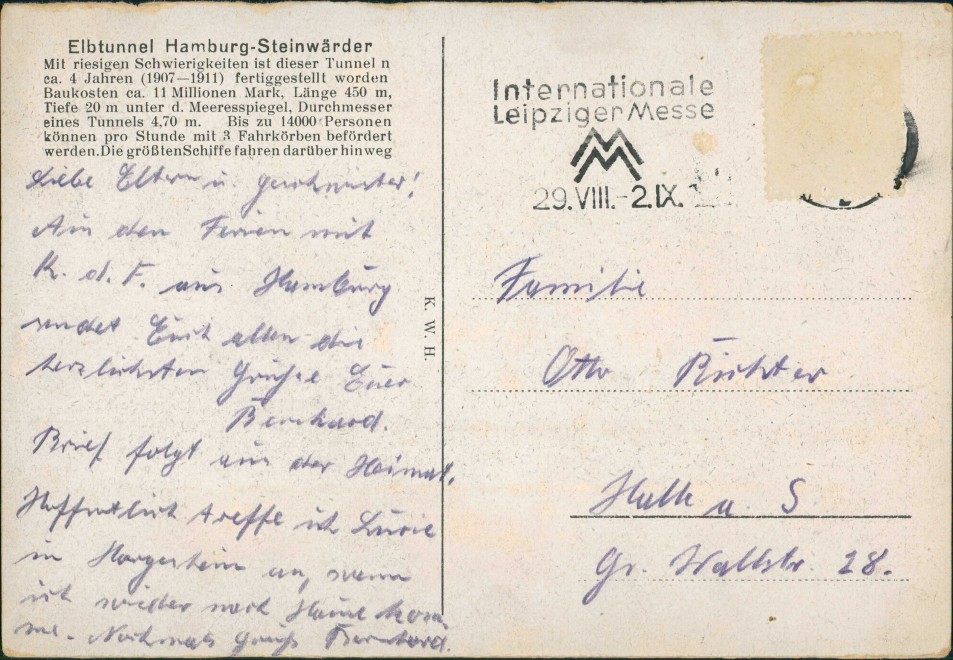 Elbtunnel Hamburg-Steinwärder
Mit riesigen Schwierigkeiten ist dieser Tunnel n
ca. 4 Jahren (1907—1911) fertiggestellt worden
Baukosten ca. 11 Millionen Mark, Länge 450 m,
Tiefe 20 m unter d. Meeresspiegel, Durchmesser
eines Tunnels 4,70 m. Bis zu 14000 Personen
können pro Stunde mit 3 Fahrkörben befördert
werden. Die größten Schiffe fahren darüber hinweg
Liebe Eltern u. Geschwister!
Aus den Ferien mit
K. d. F. aus Hamburg
sendet Euch allen die
herzlichsten Grüße Euer
Bernhard.
Brief folgt aus der Heimat.
Hoffentlich treffe ich Lucie
in an, wenn
ich wieder nach Hause kom
me. Nochmals Gruß Bernhard.
K. W. H.
Internationale
Leipziger Messe
MM
29.VIII.-2.IX.
Familie
Otto Richter
Halle a. S
Gr. Wallstr. 28.